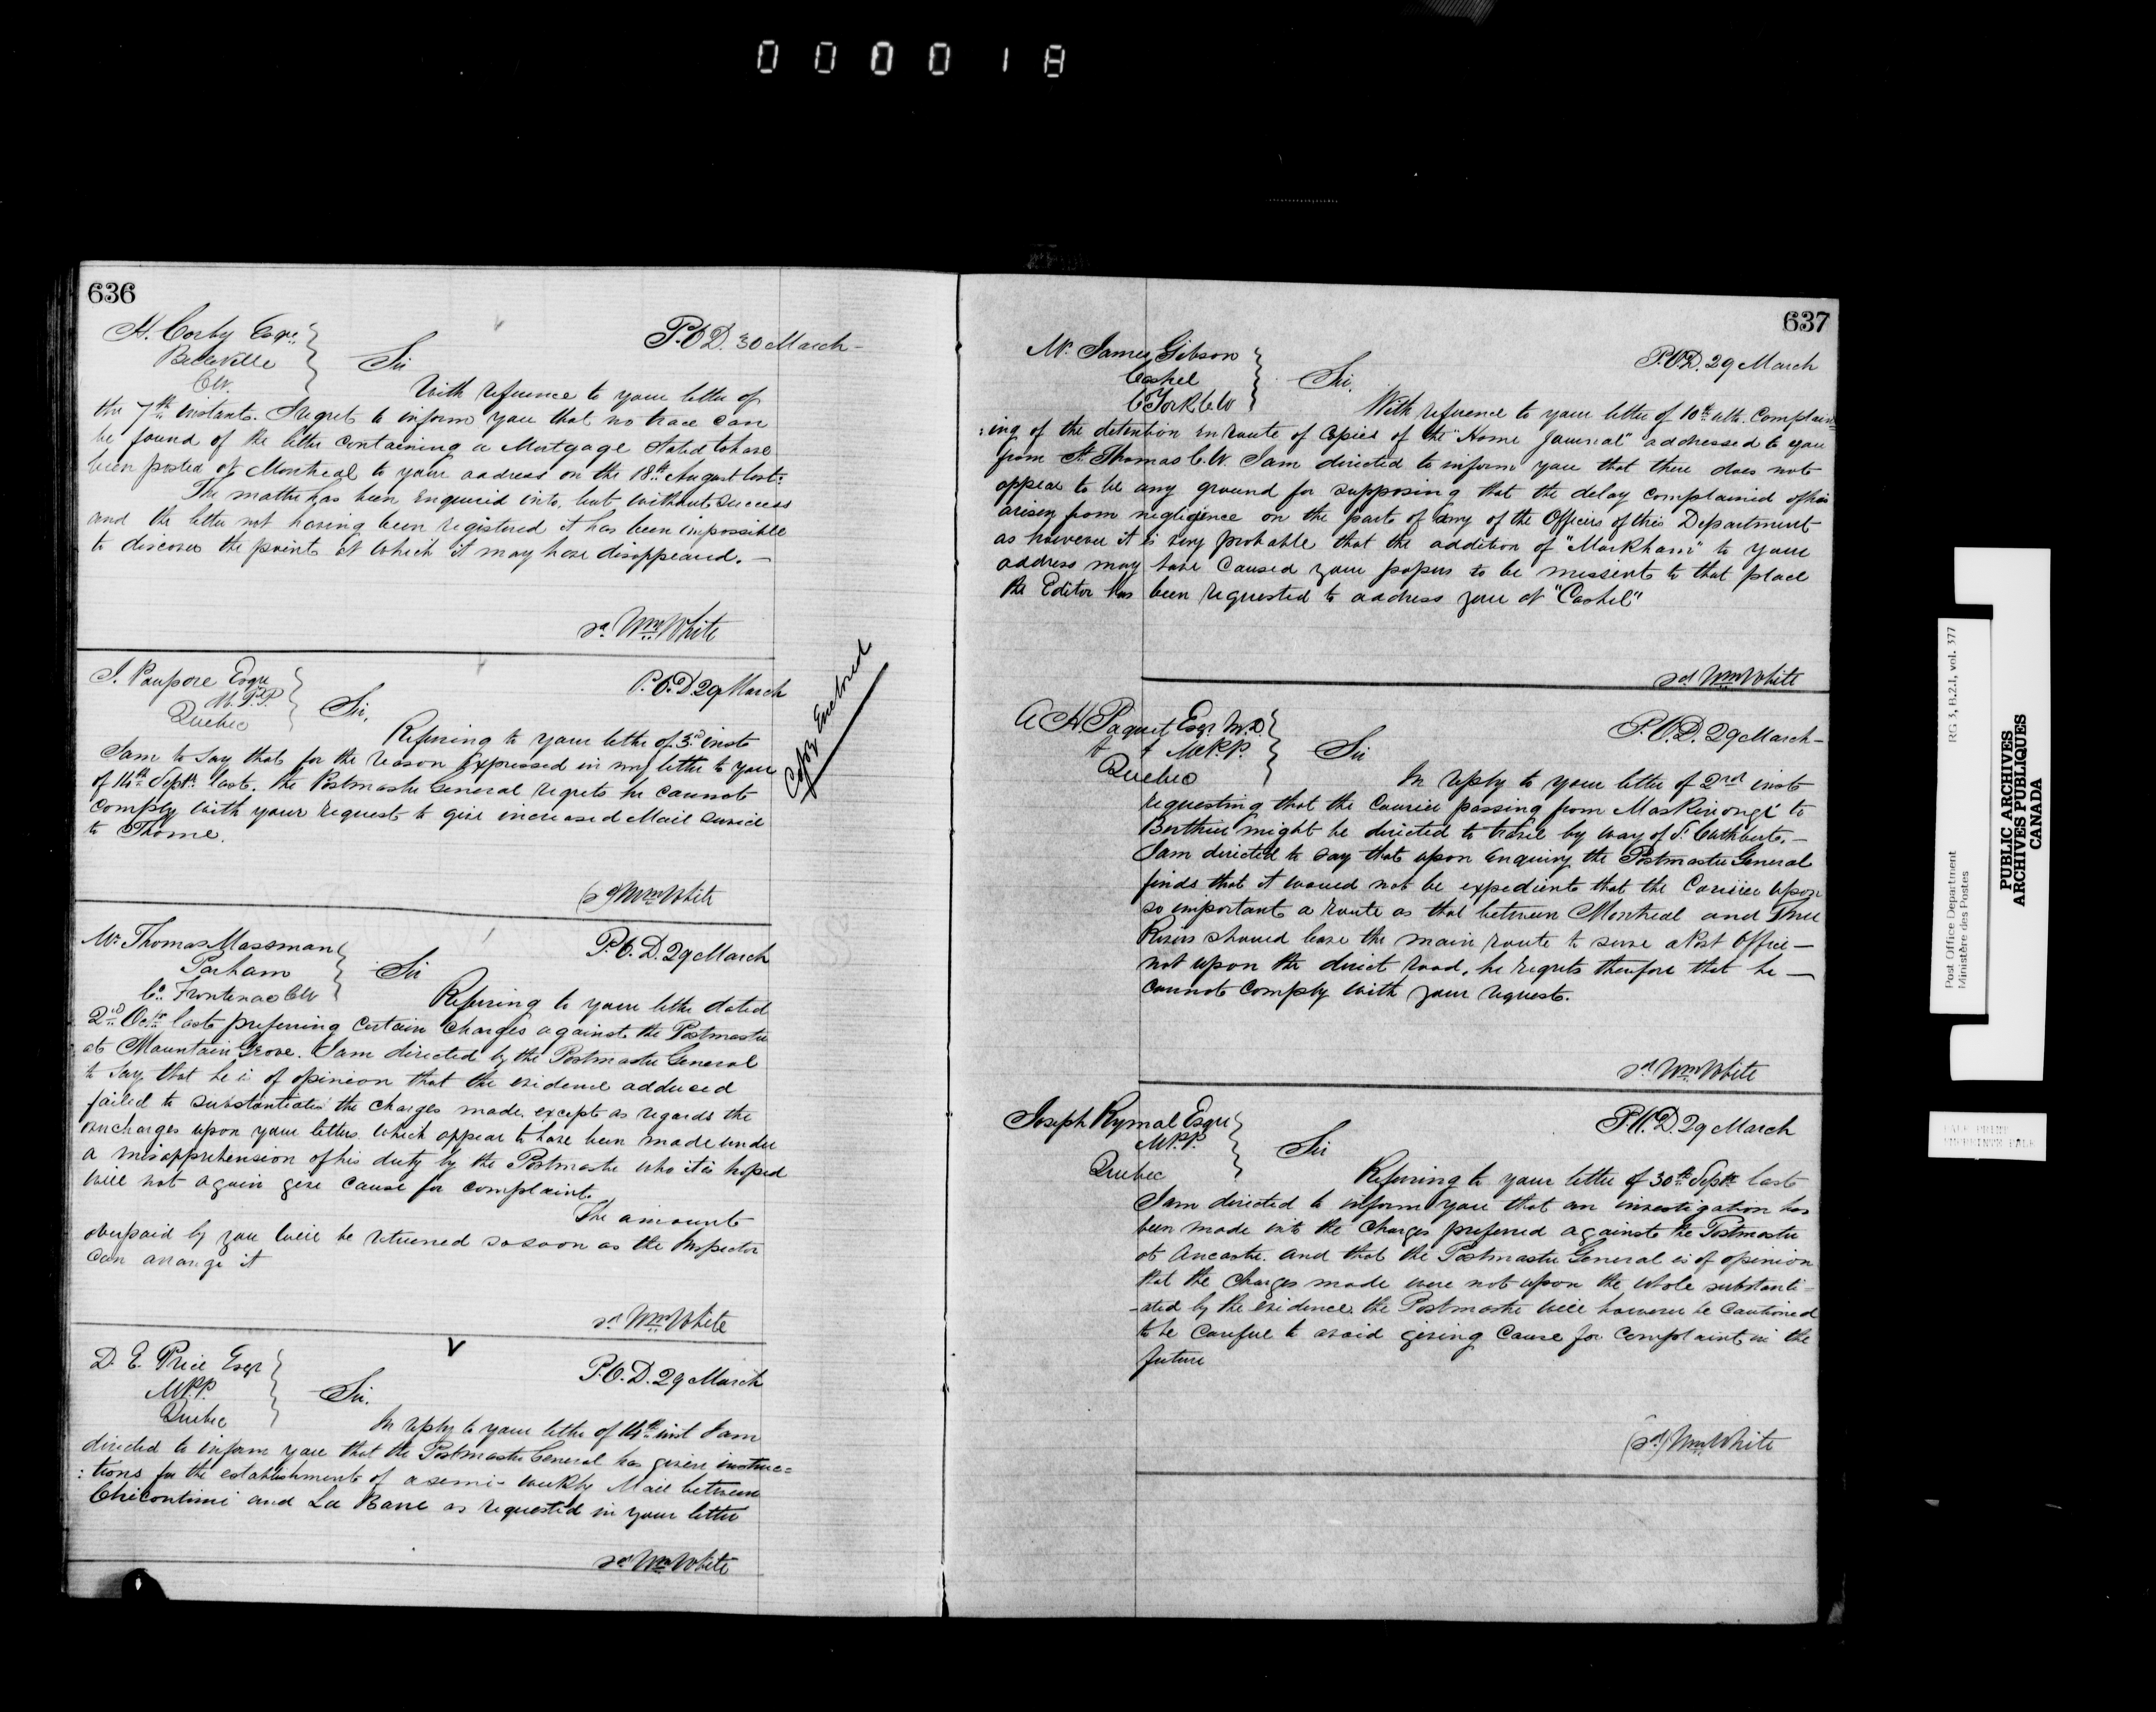 000018
636
H. Corby Esqr.
Belleville
C.W.
P.O.D. 30 March
Sir
With reference to your letter of
the 7th instant. I regret to inform you that no trace can
be found of the letter containing a Mortgage stated to have
been posted at Montreal to your address on the 18th August last.
The matter has been enquired into, but without success
and the letter not having been registered it has been impossible
to discover the point at which it may have disappeared.
sd. Wm. White
J. Poupore Esqre
M.P.P.
Quebec
P.O.D. 29 March
Sir,
Refering to your letter of 3rd inst
I am to say that for the reason expressed in my letter to you
of 14th Septr. last. the Postmaster General regrets he cannot
comply with your request to give increased Mail service
to Thorne.
(sd) Wm White
Copy Enclosed
Mr. Thomas Massman
Parham
Co. Frontenac CW
P.O.D. 29 March
Sir
Refering to your letter dated
2nd Octr. last preferring certain charges against the Postmaster
at Mountain Grove. I am directed by the Postmaster General
to say that he is of opinion that the evidence adduced
failed to substantiate the charges made, except as regards the
overcharges upon your letters which appear to have been made under
a misapprehension of his duty by the Postmaster who it is hoped
will not again give cause for complaint.
The amount
overpaid by you will be returned so soon as the Inspector
can arrange it
sd Wm White
D. E. Price Esqr
M.P.P.
Quebec
P.O.D. 29 March
Sir.
In reply to your letter of 14th inst I am
directed to inform you that the Postmaster General has given instruc=
:tions for the establishment of a semi-weekly Mail between
Chicoutimi and La Baie as requested in your letter
sd Wm White
637
Mr. James Gibson
Cashel
C York C.W
P.O.D. 29 March
Sir.
With reference to your letter of 10th ulto. Complain=
:ing of the detention en route of copies of the "Home Journal" addressed to you
from St Thomas C.W. I am directed to inform you that there does not
appear to be any ground for supposing that the delay complained of has
arisen from negligence on the part of any of the Officers of this Department
as however it is very probable that the addition of "Markham" to your
address may have caused your papers to be missent to that place
the Editor has been requested to address you at "Cashel"
sd Wm White
A H Paquet Esqr M.D
& & M.P.P.
Quebec
P.O.D. 29 March
Sir
In reply to your letter of 2nd inst
requesting that the Courier passing from Maskinongé to
Berthier might be directed to travel by way of St Cuthbert.
I am directed to say that upon enquiry the Postmaster General
finds that it would not be expedient that the Courier upon
so important a route as that between Montreal and Three
Rivers should leave the main route to serve a Post Office
not upon the direct road, he regrets therefore that he
cannot comply with your request.
sd Wm White
Joseph Rymal Esqre
M.P.P.
Quebec
P.O.D. 29 March
Sir
Referring to your letter of 30th Septr last
I am directed to inform you that an investigation has
been made into the charges preferred against the Postmaster
at Ancaster. and that the Postmaster General is of opinion
that the charges made were not upon the whole substanti-
-ated by the evidence the Postmaster will however be cautioned
to be careful to avoid giving cause for complaint in the
future
(sd) Wm White
Post Office Department RG 3, B.2.1, vol. 377
Ministère des Postes
PUBLIC ARCHIVES
ARCHIVES PUBLIQUES
CANADA